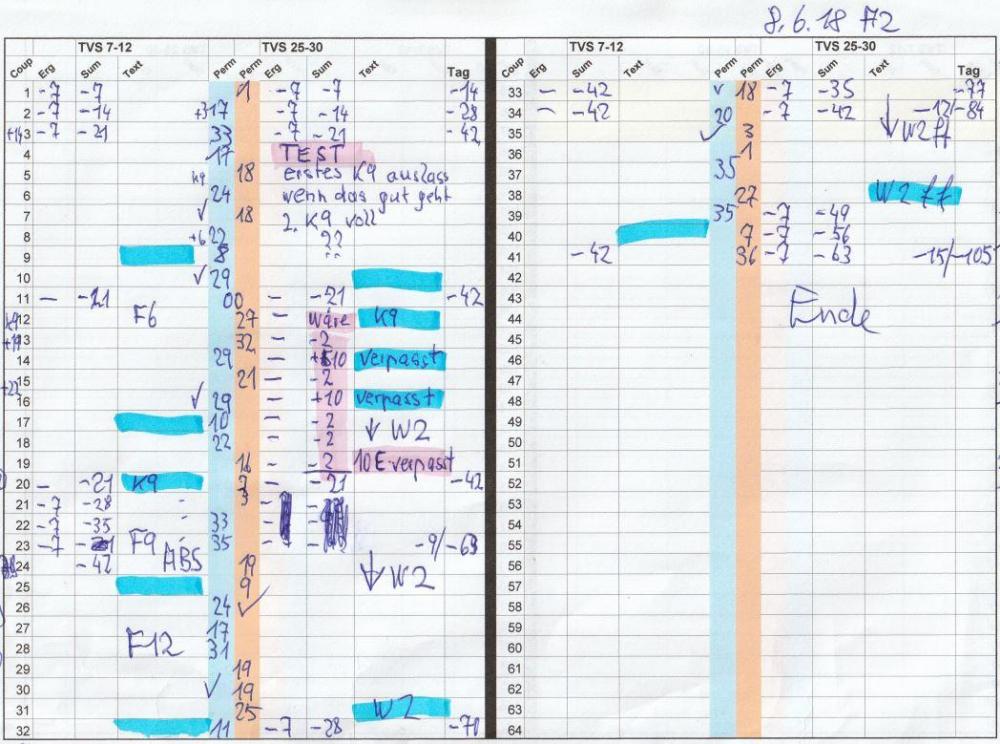 8.6.18 A2
TVS 7-12 TVS 25-30 TVS 7-12 TVS 25-30
Coup Erg Sum Text Perm Perm Erg Sum Text Tag Coup Erg Sum Text Perm Perm Erg Sum Text Tag
1 -7 -7 1 -7 -7 -14 33 – -42 ✓ 18 -7 -35 -77
2 -7 -14 17 -7 -14 -28 34 – -42 20 -7 -42 -12/-84
3 -7 -21 33 -7 -21 -42 35 ✓ 3 ↓ W2 ff
4 17 TEST 36 1
5 K9 18 erstes K9 auslass 37 35
6 24 wenn das gut geht 38 27 W2 ff
7 ✓ 18 2. K9 voll 39 35 -7 -49
8 +6 22 ?? 40 7 -7 -56
9 8 41 -42 36 -7 -63 -15/-105
10 ✓ 29 42
11 – -21 00 – -21 -42 43 Ende
12 F6 27 – wäre K9 44
13 32 – -2 45
14 29 – +10 verpasst 46
15 21 – -2 47
16 ✓ 29 – +10 verpasst 48
17 10 – -2 ↓ W2 49
18 22 – -2 50
19 – -2 10 E verpasst 51
20 – -21 K9 – -21 -42 52
21 -7 -28 3 53
22 -7 -35 33 54
23 -7 F9 35 -9/-63 55
24 -42 ABS 19 ↓ W2 56
25 9 57
26 24 ✓ 58
27 17 59
28 F12 31 60
29 19 61
30 ✓ 19 62
31 25 W2 63
32 11 -7 -28 -70 64